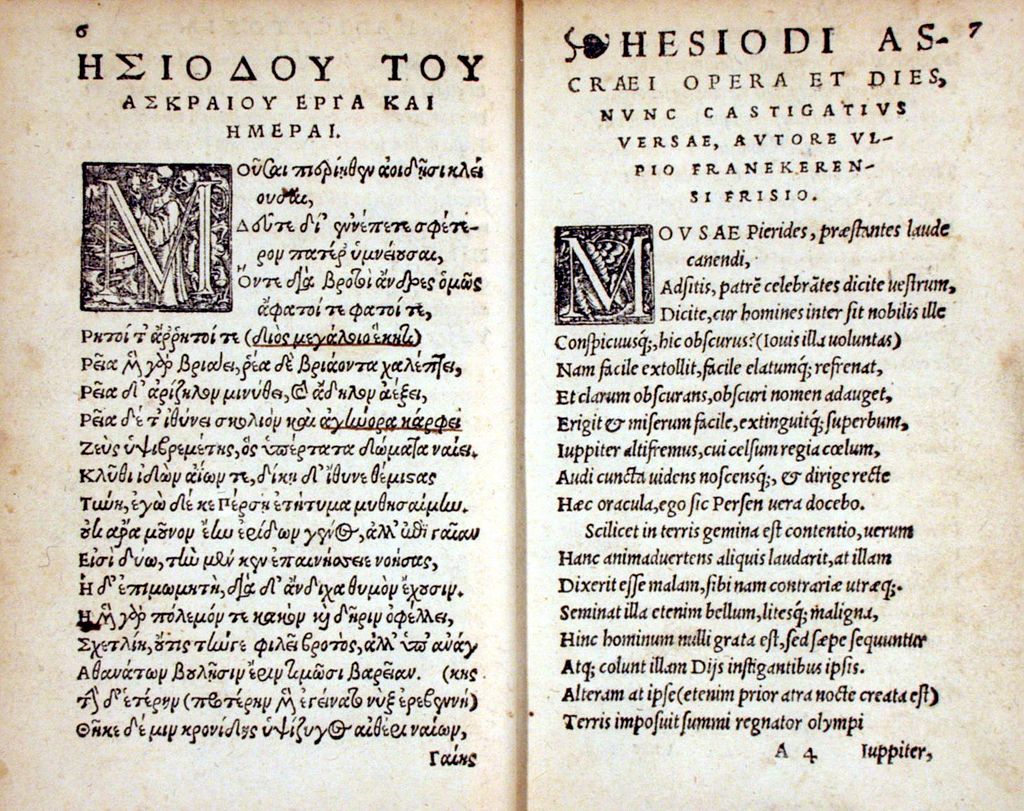 6
ΗΣΙΟΔΟΥ ΤΟΥ
ΑΣΚΡΑΙΟΥ ΕΡΓΑ ΚΑΙ
ΗΜΕΡΑΙ.
ΜΟῦσαι πιερίηθεν ἀοιδῇσι κλεί
ουσαι,
Δεῦτε δί' ἐννέπετε σφέτε-
ρον πατέρ' ὑμνείουσαι,
Ὅντε διὰ βροτοὶ ἄνδρες ὁμῶς
ἄφατοί τε φατοί τε,
Ρητοί τ' ἄρρητοί τε (διὸς μεγάλοιο ἕκητι)
Ρεῖα μὲν γὰρ βριάει, ῥέα δὲ βριάοντα χαλέπτει,
Ρεῖα δ' ἀρίζηλον μινύθει, καὶ ἄδηλον ἀέξει,
Ρεῖα δέ τ' ἰθύνει σκολιὸν καὶ ἀγήνορα κάρφει
Ζεὺς ὑψιβρεμέτης, ὃς ὑπέρτατα δώματα ναίει.
Κλῦθι ἰδὼν ἀΐων τε, δίκῃ δ' ἴθυνε θέμιστας
Τύνη, ἐγὼ δέ κε Πέρσῃ ἐτήτυμα μυθησαίμην.
οὐκ ἄρα μοῦνον ἔην ἐρίδων γένος, ἀλλ' ἐπὶ γαῖαν
Εἰσὶ δύω, τὴν μέν κεν ἐπαινήσειε νοήσας,
Ἡ δ' ἐπιμωμητὴ, διὰ δ' ἄνδιχα θυμὸν ἔχουσιν.
Ἡ μὲν γὰρ πόλεμόν τε κακὸν καὶ δῆριν ὀφέλλει,
Σχετλίη, οὔτις τήνγε φιλεῖ βροτὸς, ἀλλ' ὑπ' ἀνάγ
Ἀθανάτων βουλῇσιν ἔριν τιμῶσι βαρεῖαν. (κης
Τὴν δ' ἑτέρην (προτέρην μὲν ἐγείνατο νὺξ ἐρεβεννή)
Θῆκε δέ μιν κρονίδης ὑψίζυγος αἰθέρι ναίων,
Γαίης
7
HESIODI AS-
CRAEI OPERA ET DIES,
NVNC CASTIGATIVS
VERSAE, AVTORE VL-
PIO FRANEKEREN-
SI FRISIO.
MOVSAE Pierides, præstantes laude
canendi,
Adsitis, patrẽ celebrãtes dicite uestrum,
Dicite, cur homines inter sit nobilis ille
Conspicuusq;, hic obscurus? (Iouis illa uoluntas)
Nam facile extollit, facile elatumq; refrenat,
Et clarum obscurans, obscuri nomen adauget,
Erigit & miserum facile, extinguitq; superbum,
Iuppiter altifremus, cui celsum regia cœlum,
Audi cuncta uidens noscensq;, & dirige recte
Hæc oracula, ego sic Persen uera docebo.
Scilicet in terris gemina est contentio, uerum
Hanc animaduertens aliquis laudarit, at illam
Dixerit esse malam, sibi nam contrariæ utræq;.
Seminat illa etenim bellum, litesq; maligna,
Hinc hominum nulli grata est, sed sæpe sequuntur
Atq; colunt illam Dijs instigantibus ipsis.
Alteram at ipse (etenim prior atra nocte creata est)
Terris imposuit summi regnator olympi
A 4 Iuppiter,